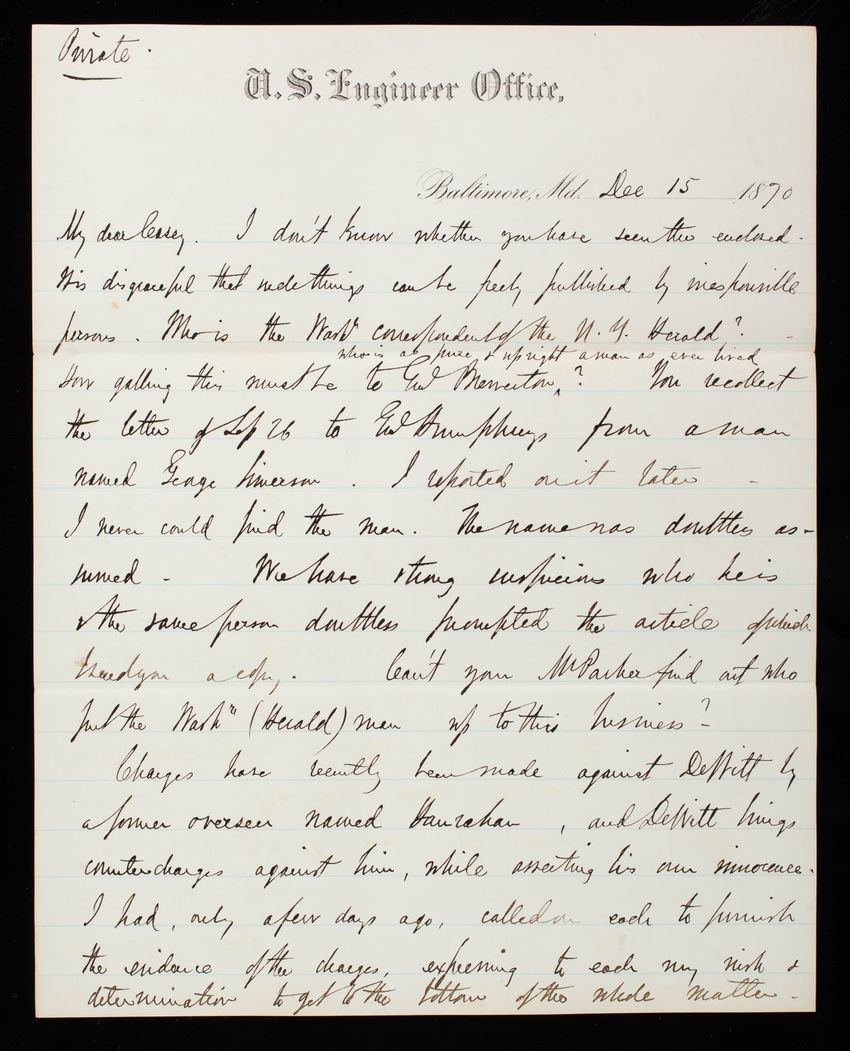 Private.
U. S. Engineer Office,
Baltimore, Md. Dec 15 1870
My dear Casey. I don't know whether you have seen the enclosed.
It is disgraceful that such things can be freely published by irresponsible
persons. Who is the Washn correspondent of the N. Y. Herald?
who is as pure & upright a man as ever lived
How galling this must be to Genl Brewerton ^ ? You recollect
the letter of Sep 26 to Genl Humphreys from a man
named George Simerson. I reported on it later -
I never could find the man. The name was doubtless as-
sumed - We have strong suspicions who he is
& the same person doubtless prompted the article of which
I send you a copy. Can't your Mr Parker find out who
put the Washn (Herald) man up to this business? -
Charges have recently been made against DeWitt by
a former overseer named Hanrahan, and DeWitt brings
counter charges against him, while asserting his own innocence.
I had, only a few days ago, called on each to furnish
the evidence of the charges, expressing to each my wish &
determination to get to the bottom of the whole matter -